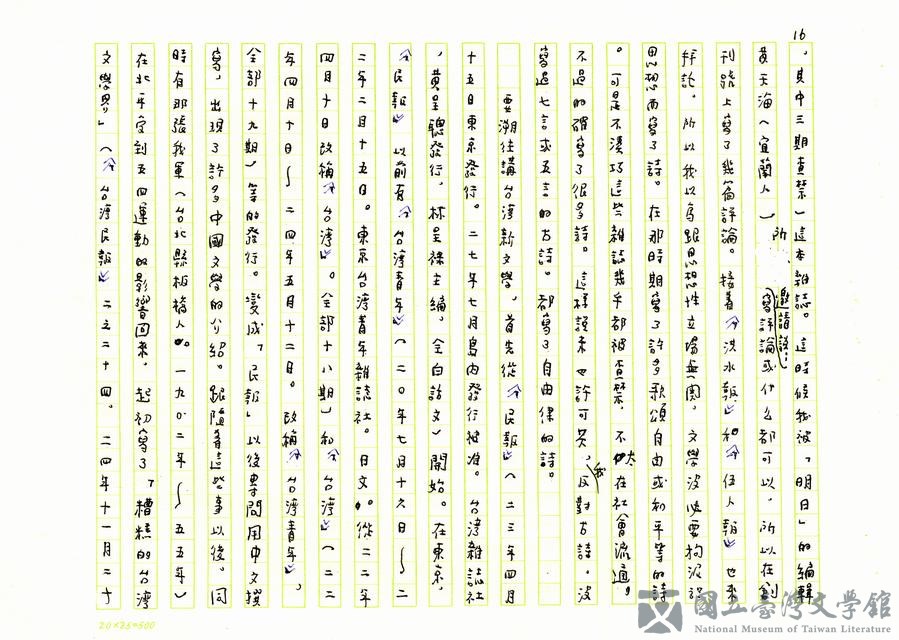 16
，其中三期查禁）這本雜誌。這時候我被「明日」的編輯
黃天海（宜蘭人）所邀請說：寫評論或什么都可以，所以在創
刊號上寫了幾篇評論。接着《洪水報》和《伍人報》也來
拜託。所以我以為跟思想性立場無關，文學没必要拘泥
思想而寫了詩。在那時期寫了許多歌頌自由或和平等的詩
。可是不湊巧這些雜誌幾乎都被查禁，不太在社會流通。
不過的確寫了很多詩。這樣說来也許可笑，我反對古詩。没
寫過七言或五言的古詩。都寫了自由律的詩。
要溯往講台湾新文學，首先從《民報》（二三年四月
十五日東京發行。二七年七月島内發行被准。台湾雜誌社
，黃呈聰發行，林呈祿主編，全白話文）開始。在東京，
《民報》以前有《台湾青年》（二〇年七月十六日～二
二年二月十五日。東京台湾青年雜誌社。日文。從二二年
四月十日改稱《台湾》。全部十八期）和《台湾》（二二
年四月十日～二四年五月十二日。改稱《台湾青年》，
全部十九期）等的發行。變成「民報」以後專門用中文撰
寫，出現了許多中國文學的介紹。跟隨着這些事以後。同
時有那張我軍（台北縣板橋人。一九〇二年～五五年）
在北平受到五四運動的影響回來，起初寫了「糟糕的台湾
文學界」（《台湾民報》二之二十四。二四年十一月二十
20×25=500
國立臺灣文學館
National Museum of Taiwan Literature